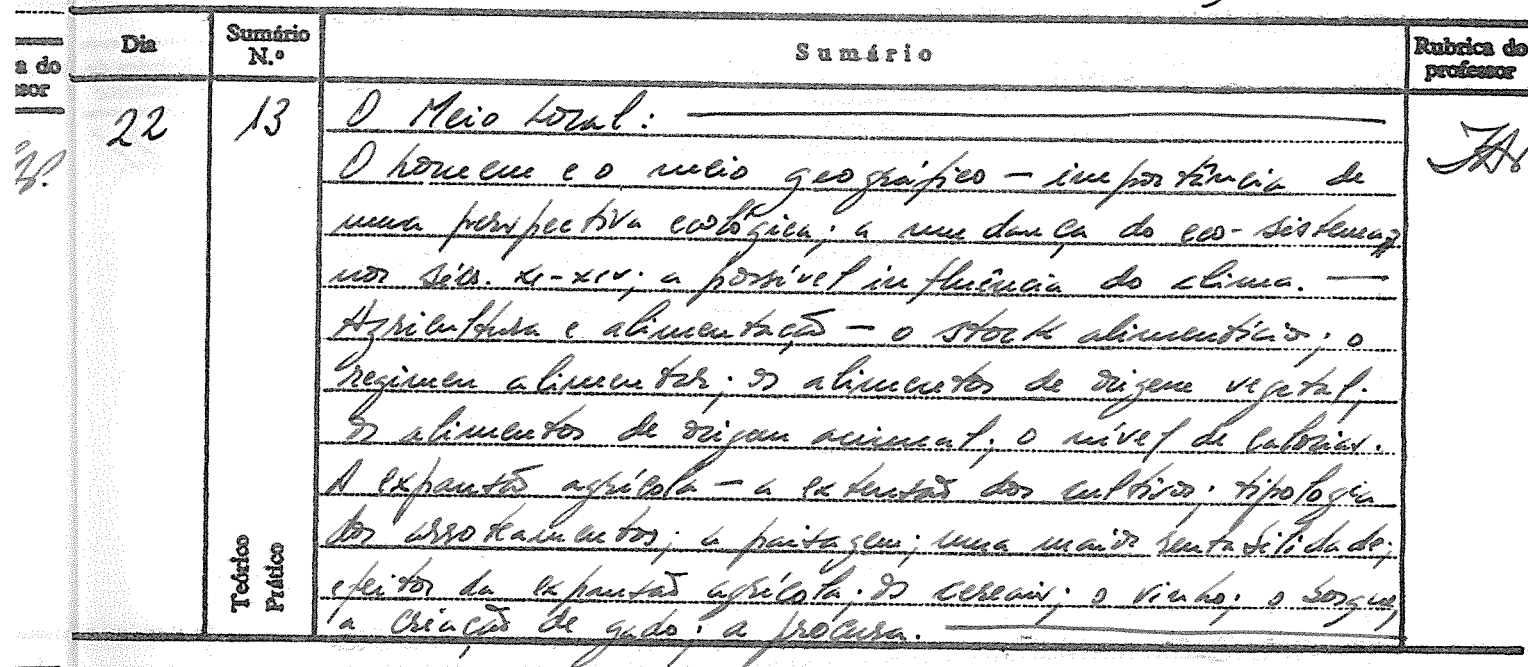 Dia
Sumário N.º
Sumário
Rubrica do professor
a do
sor
22
13
O Meio Local:
O homem e o meio geográfico — importância de
uma perspectiva ecológica; a mudança do eco-sistema
nos sécs. XI-XIV; a possível influência do clima. —
Agricultura e alimentação — o stock alimentício; o
regimen alimentar; os alimentos de origem vegetal;
os alimentos de origem animal; o nível de calorias.
A expansão agrícola — a extensão dos cultivos; tipologia
dos arroteamentos; a paisagem; uma maior rentabilidade;
efeitos da expansão agrícola; os cereais; o vinho; o bosque,
a criação de gado; a procura.
Teórico
Prático